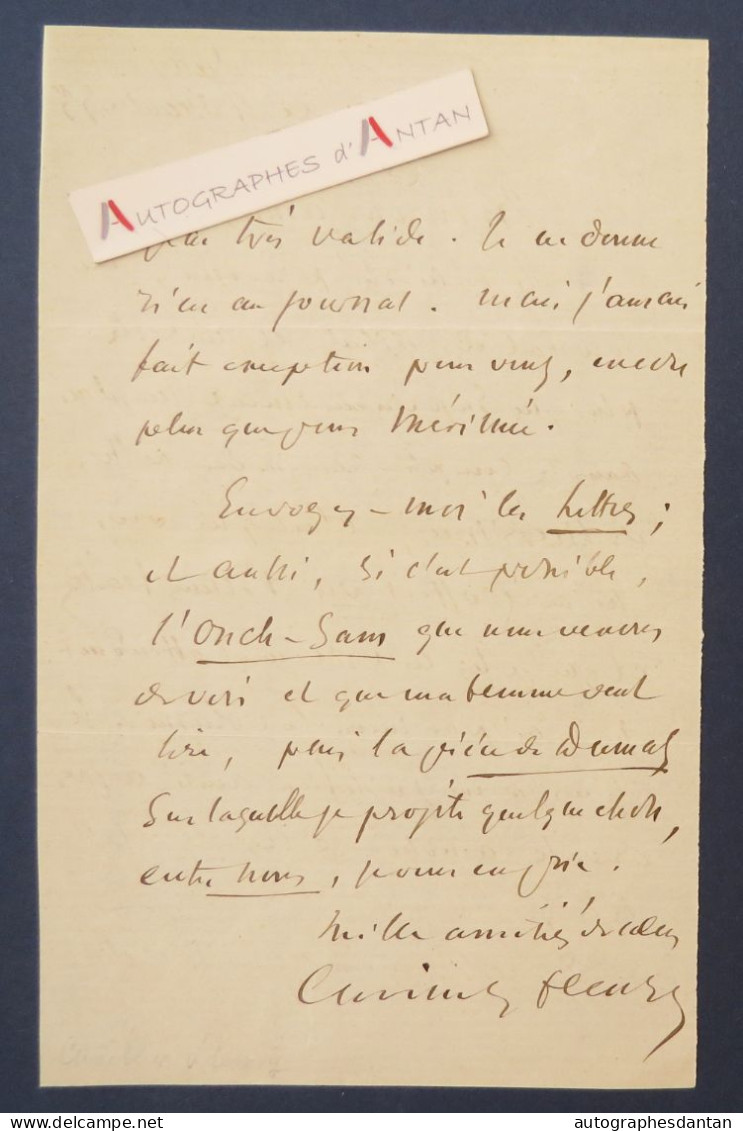 AUTOGRAPHES d'ANTAN
pas très valide. Je ne donne
rien au journal. Mais j'aurais
fait exception pour vous, encore
plus que pour Mérimée.
Envoyez-moi les Lettres;
et aussi, si c'est possible,
l'Oncle-Sam que nous venons
de voir et que ma femme veut
lire, puis la pièce de Dumas
sur laquelle je projète quelque chose,
entre nous, je vous en prie.
Mille amitiés de
Cuvillier Fleury
delcampe.net
autographesdantan